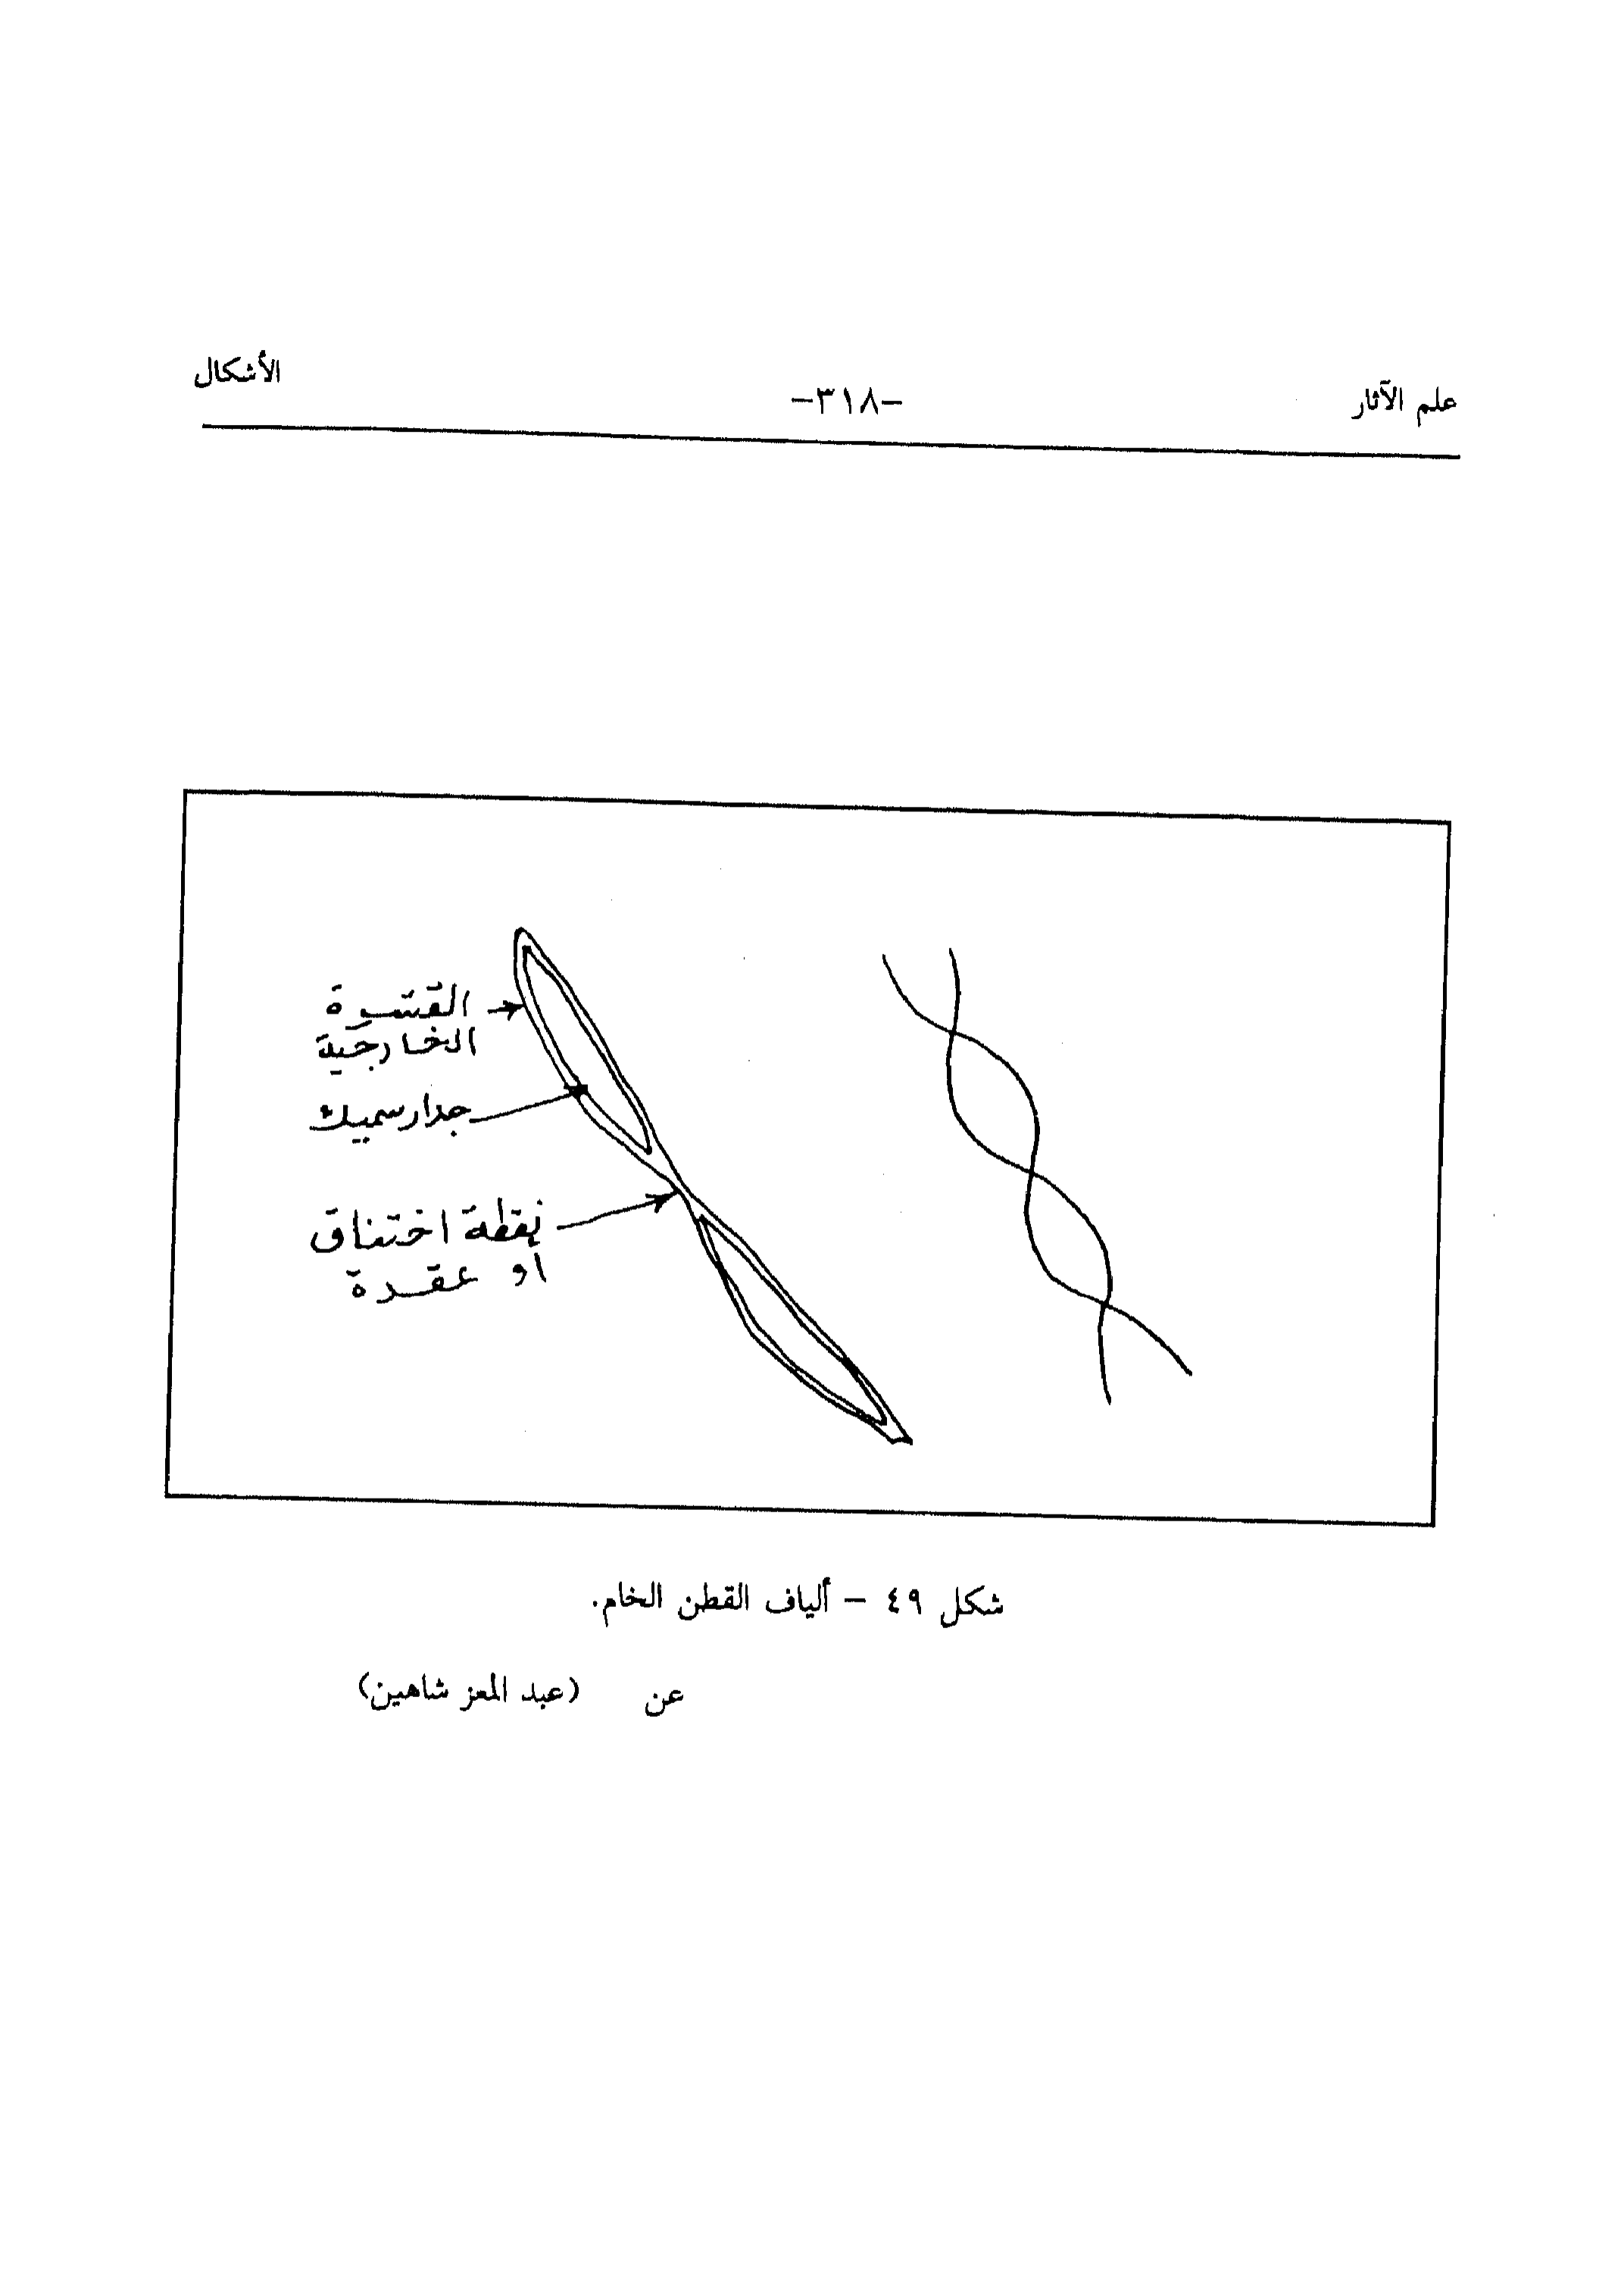 علم الآثار
-٣١٨-
الأشكال
القشرة
الخارجية
جدار سميك
نقطة اختناق
او عقدة
شكل ٤٩ – ألياف القطن الخام.
عن (عبد المعز شاهين)